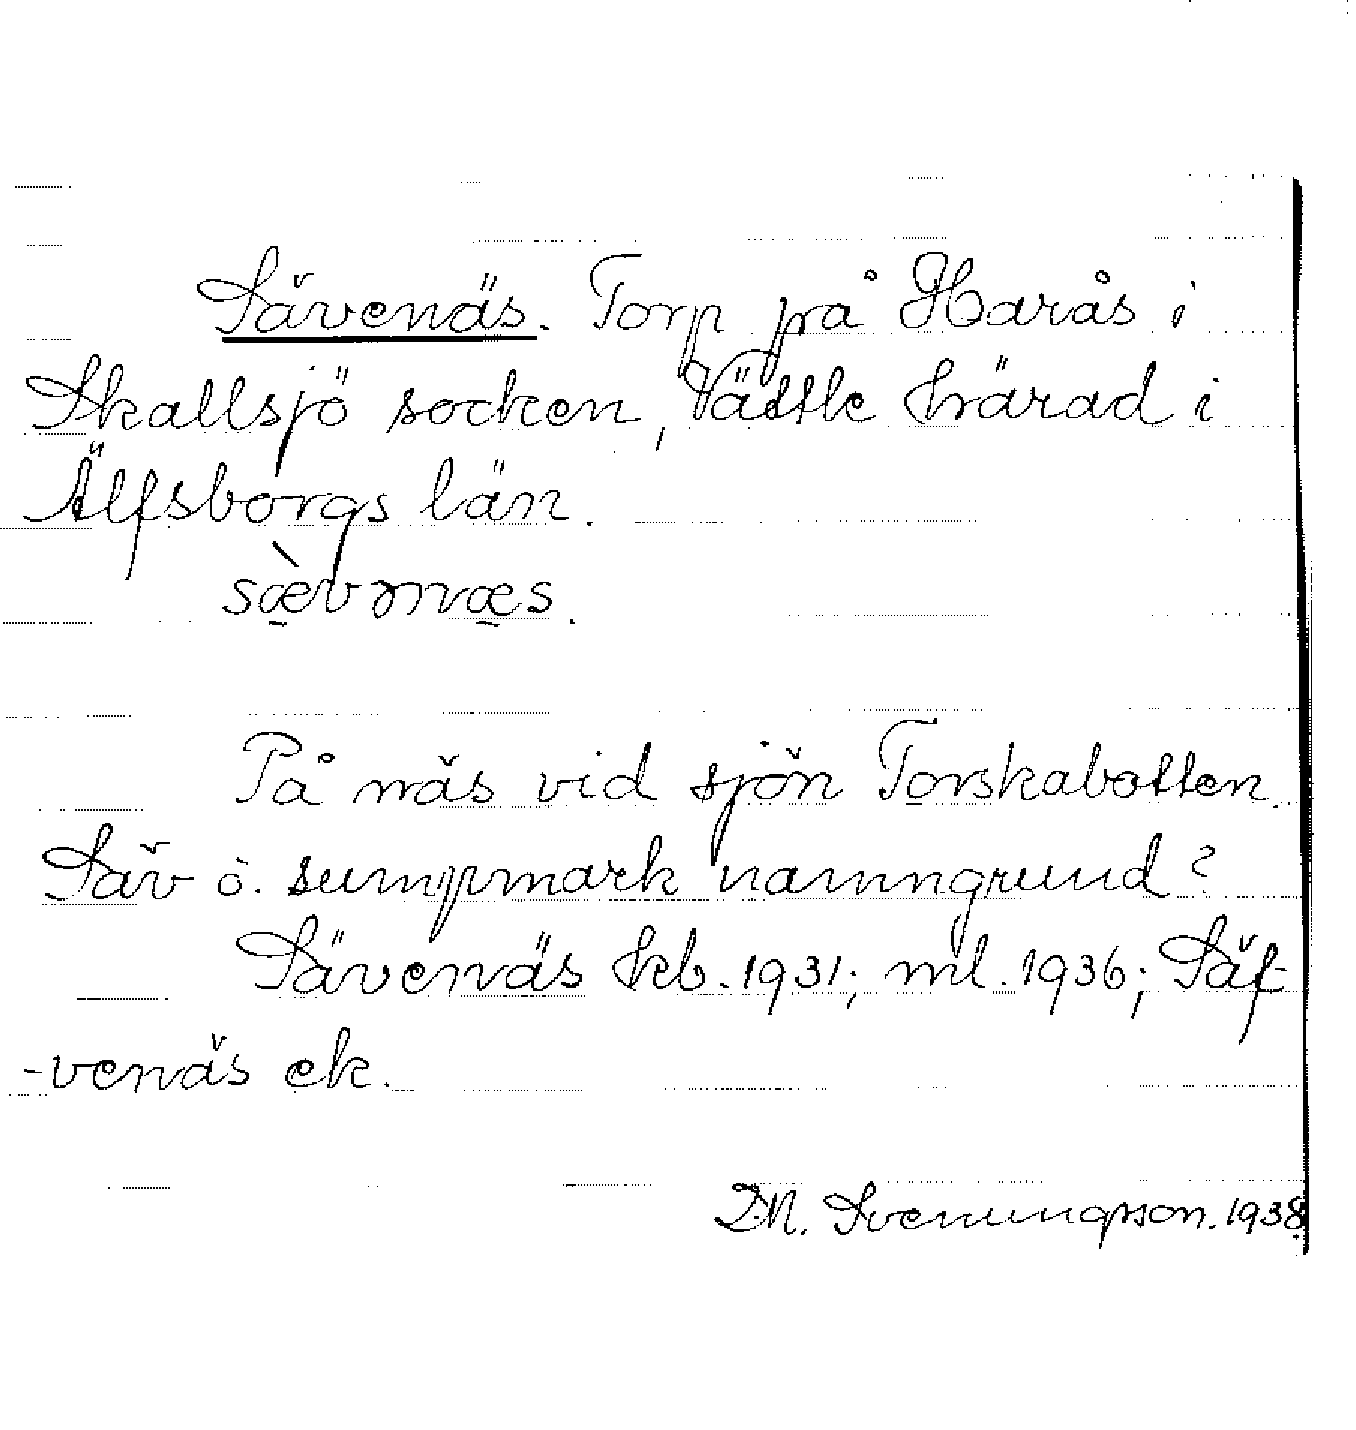 Sävenäs. Torp på Harås i
Skallsjö socken, Vättle härad i
Älfsborgs län.
sæ̀vənæs.
På näs vid sjön Torskabotten.
Säv o. sumpmark namngrund?
Sävenäs kb. 1931; ml. 1936; Säf-
-venäs ek.
D.N. Svenungsson. 1938.